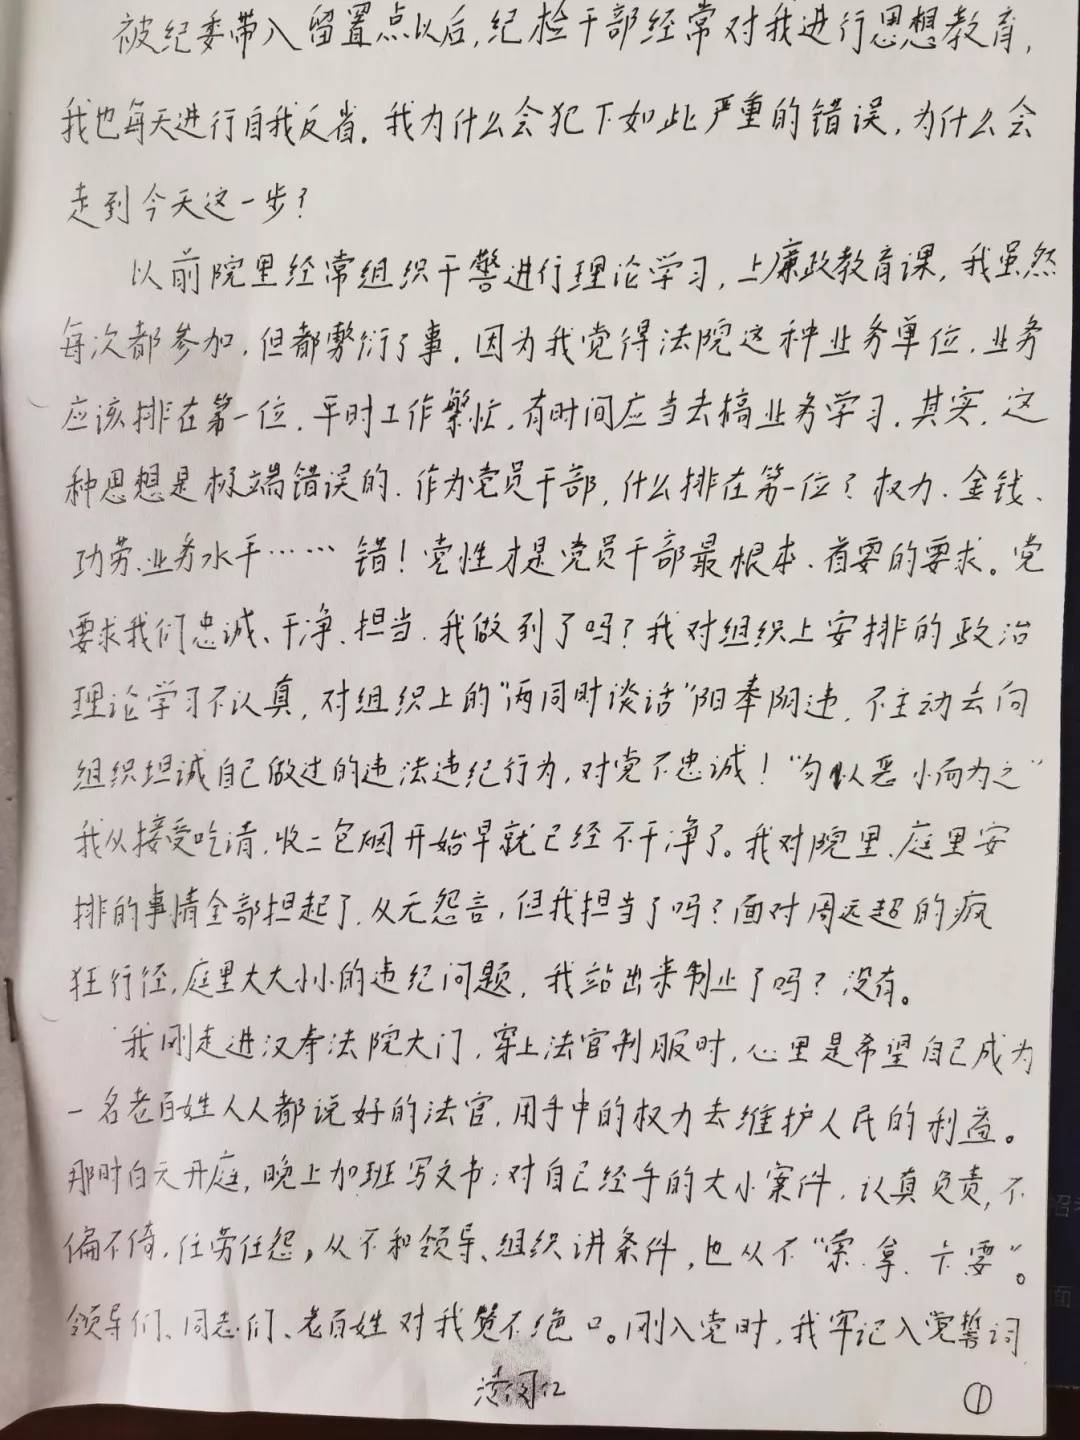 被纪委带入留置点以后,纪检干部经常对我进行思想教育,
我也每天进行自我反省。我为什么会犯下如此严重的错误,为什么会
走到今天这一步?
以前院里经常组织干警进行理论学习,上廉政教育课,我虽然
每次都参加,但都敷衍了事。因为我觉得法院这种业务单位,业务
应该排在第一位,平时工作繁忙,有时间应当去搞业务学习。其实,这
种思想是极端错误的。作为党员干部,什么排在第一位?权力、金钱、
功劳、业务水平……错!党性才是党员干部最根本、首要的要求。党
要求我们忠诚、干净、担当,我做到了吗?我对组织上安排的政治
理论学习不认真,对组织上的“两同时谈话”阳奉阴违,不主动去向
组织坦诚自己做过的违法违纪行为,对党不忠诚!“勿以恶小而为之”
我从接受吃请,收二包烟开始早就已经不干净了。我对院里、庭里安
排的事情全部担起了,从无怨言,但我担当了吗?面对周远超的疯
狂行径,庭里大大小小的违纪问题,我站出来制止了吗?没有。
我刚走进汉寿法院大门,穿上法官制服时,心里是希望自己成为
一名老百姓人人都说好的法官,用手中的权力去维护人民的利益。
那时白天开庭,晚上加班写文书;对自己经手的大小案件,认真负责,不
偏不倚,任劳任怨,从不和领导、组织讲条件,也从不“索、拿、卡要”。
领导们、同志们、老百姓对我赞不绝口。刚入党时,我牢记入党誓词
①